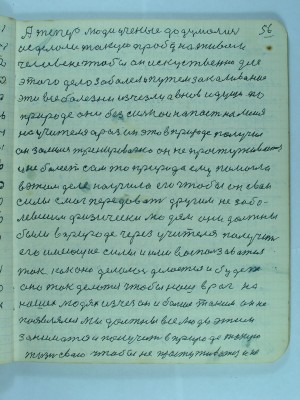 56
А теперь люди ученые додумались
и сделали такую пробу на живом
человеке чтобы он искуственно для
этого дела заболел путем закаливание
эти все болезни изчезли а вновь идущие по
природе они бессильной напасть на меня
на учителя а раз им это в природе получил
он замыш тренировался он не простуживается
и не болеет сам то природа ему помогла
в этим деле научила его чтобы он свои
силы смог передовать другим не забо-
левшим физически людям они должны
были в природе через учителя получить
его имеющие силы и ими воспользоватся
так как оно делалось делается и будет
оно так делатся чтобы наш враг на
наших людях изчезал и больше таким он не
появлялся мы должны все люди этим
заниматся и получить в природе такую
жизнь свою чтобы не простуживатся и не